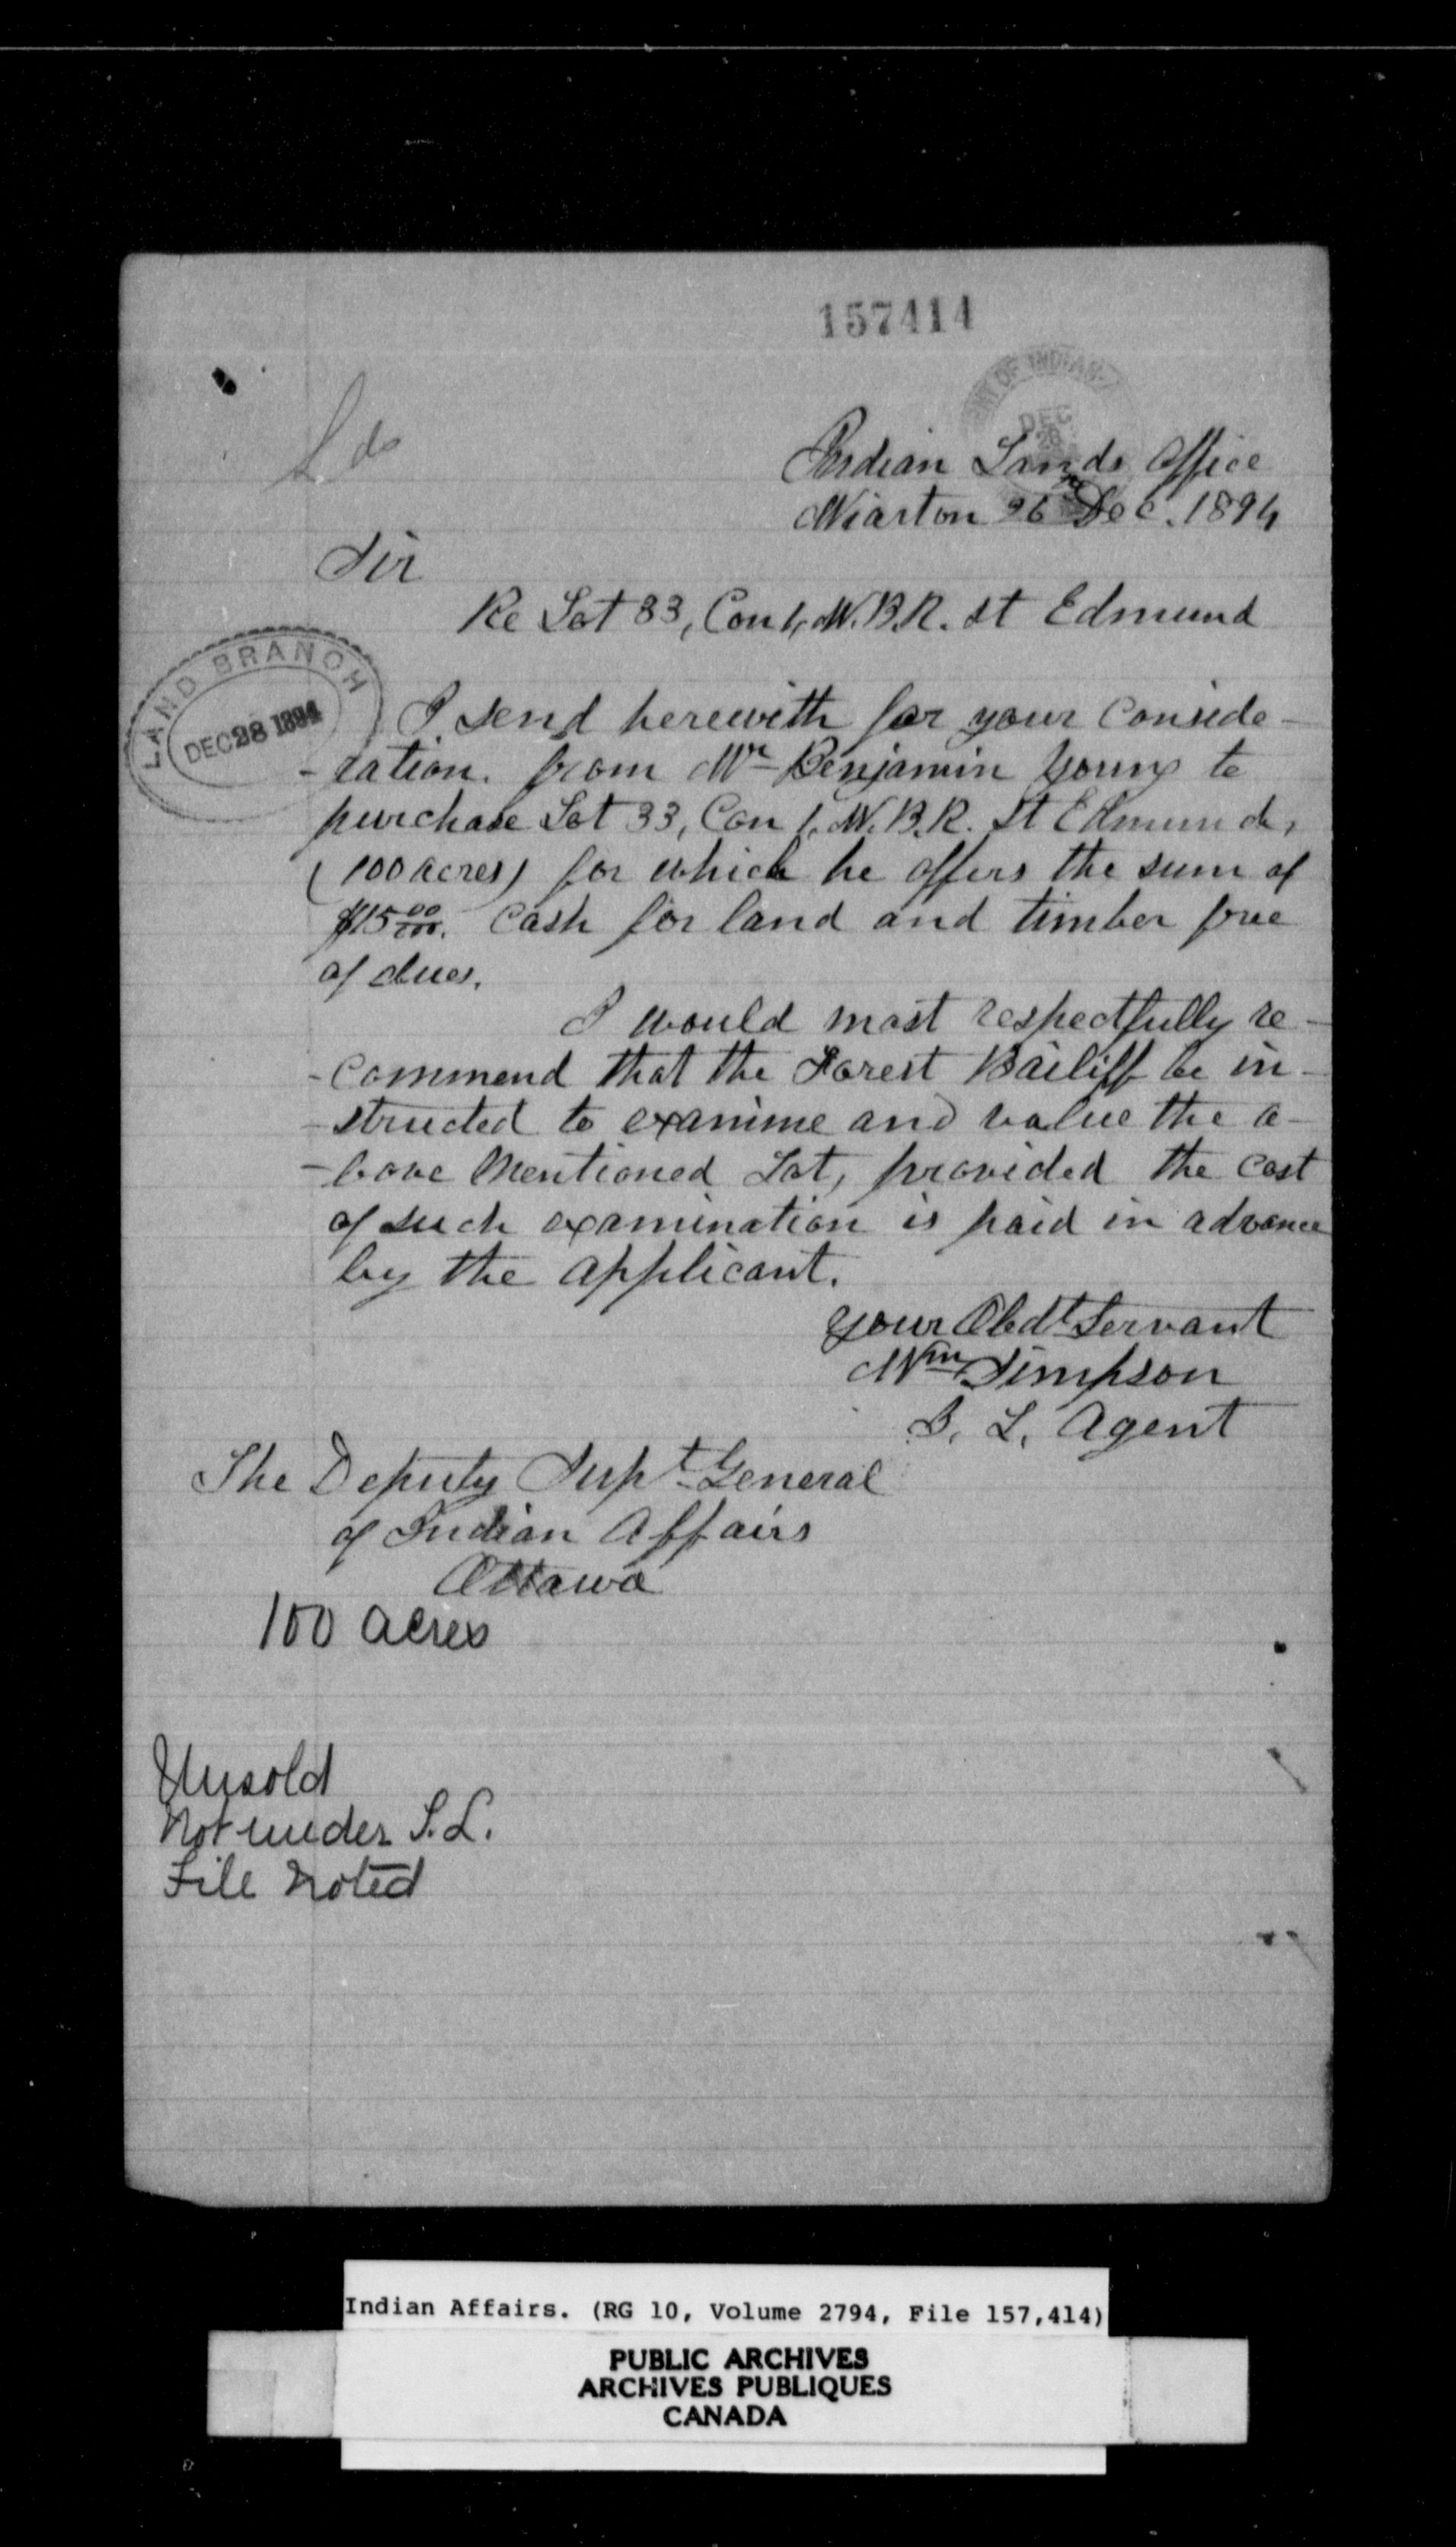 157414
Lds
DEC 28
Indian Lands Office
Wiarton 26th Dec. 1894
Sir
Re Lot 33, Con 1, W.B.R. St Edmund
LAND BRANCH
DEC 28 1894
I send herewith for your Conside-
-ration. from Mr Benjamin Young to
purchase Lot 33, Con 1, W.B.R. St Edmunds,
(100 acres) for which he offers the sum of
$15 00/100. Cash for land and timber free
of dues.
I would most respectfully re-
-commend that the Forest Bailiff be in-
-structed to examine and value the a-
-bove Mentioned Lot, provided the cost
of such examination is paid in advance
by the applicant.
Your Obdt Servant
Wm Simpson
I. L. Agent
The Deputy Supt General
of Indian Affairs
Ottawa
100 acres
Unsold
Not under T.L.
File Noted
Indian Affairs. (RG 10, Volume 2794, File 157,414)
PUBLIC ARCHIVES
ARCHIVES PUBLIQUES
CANADA